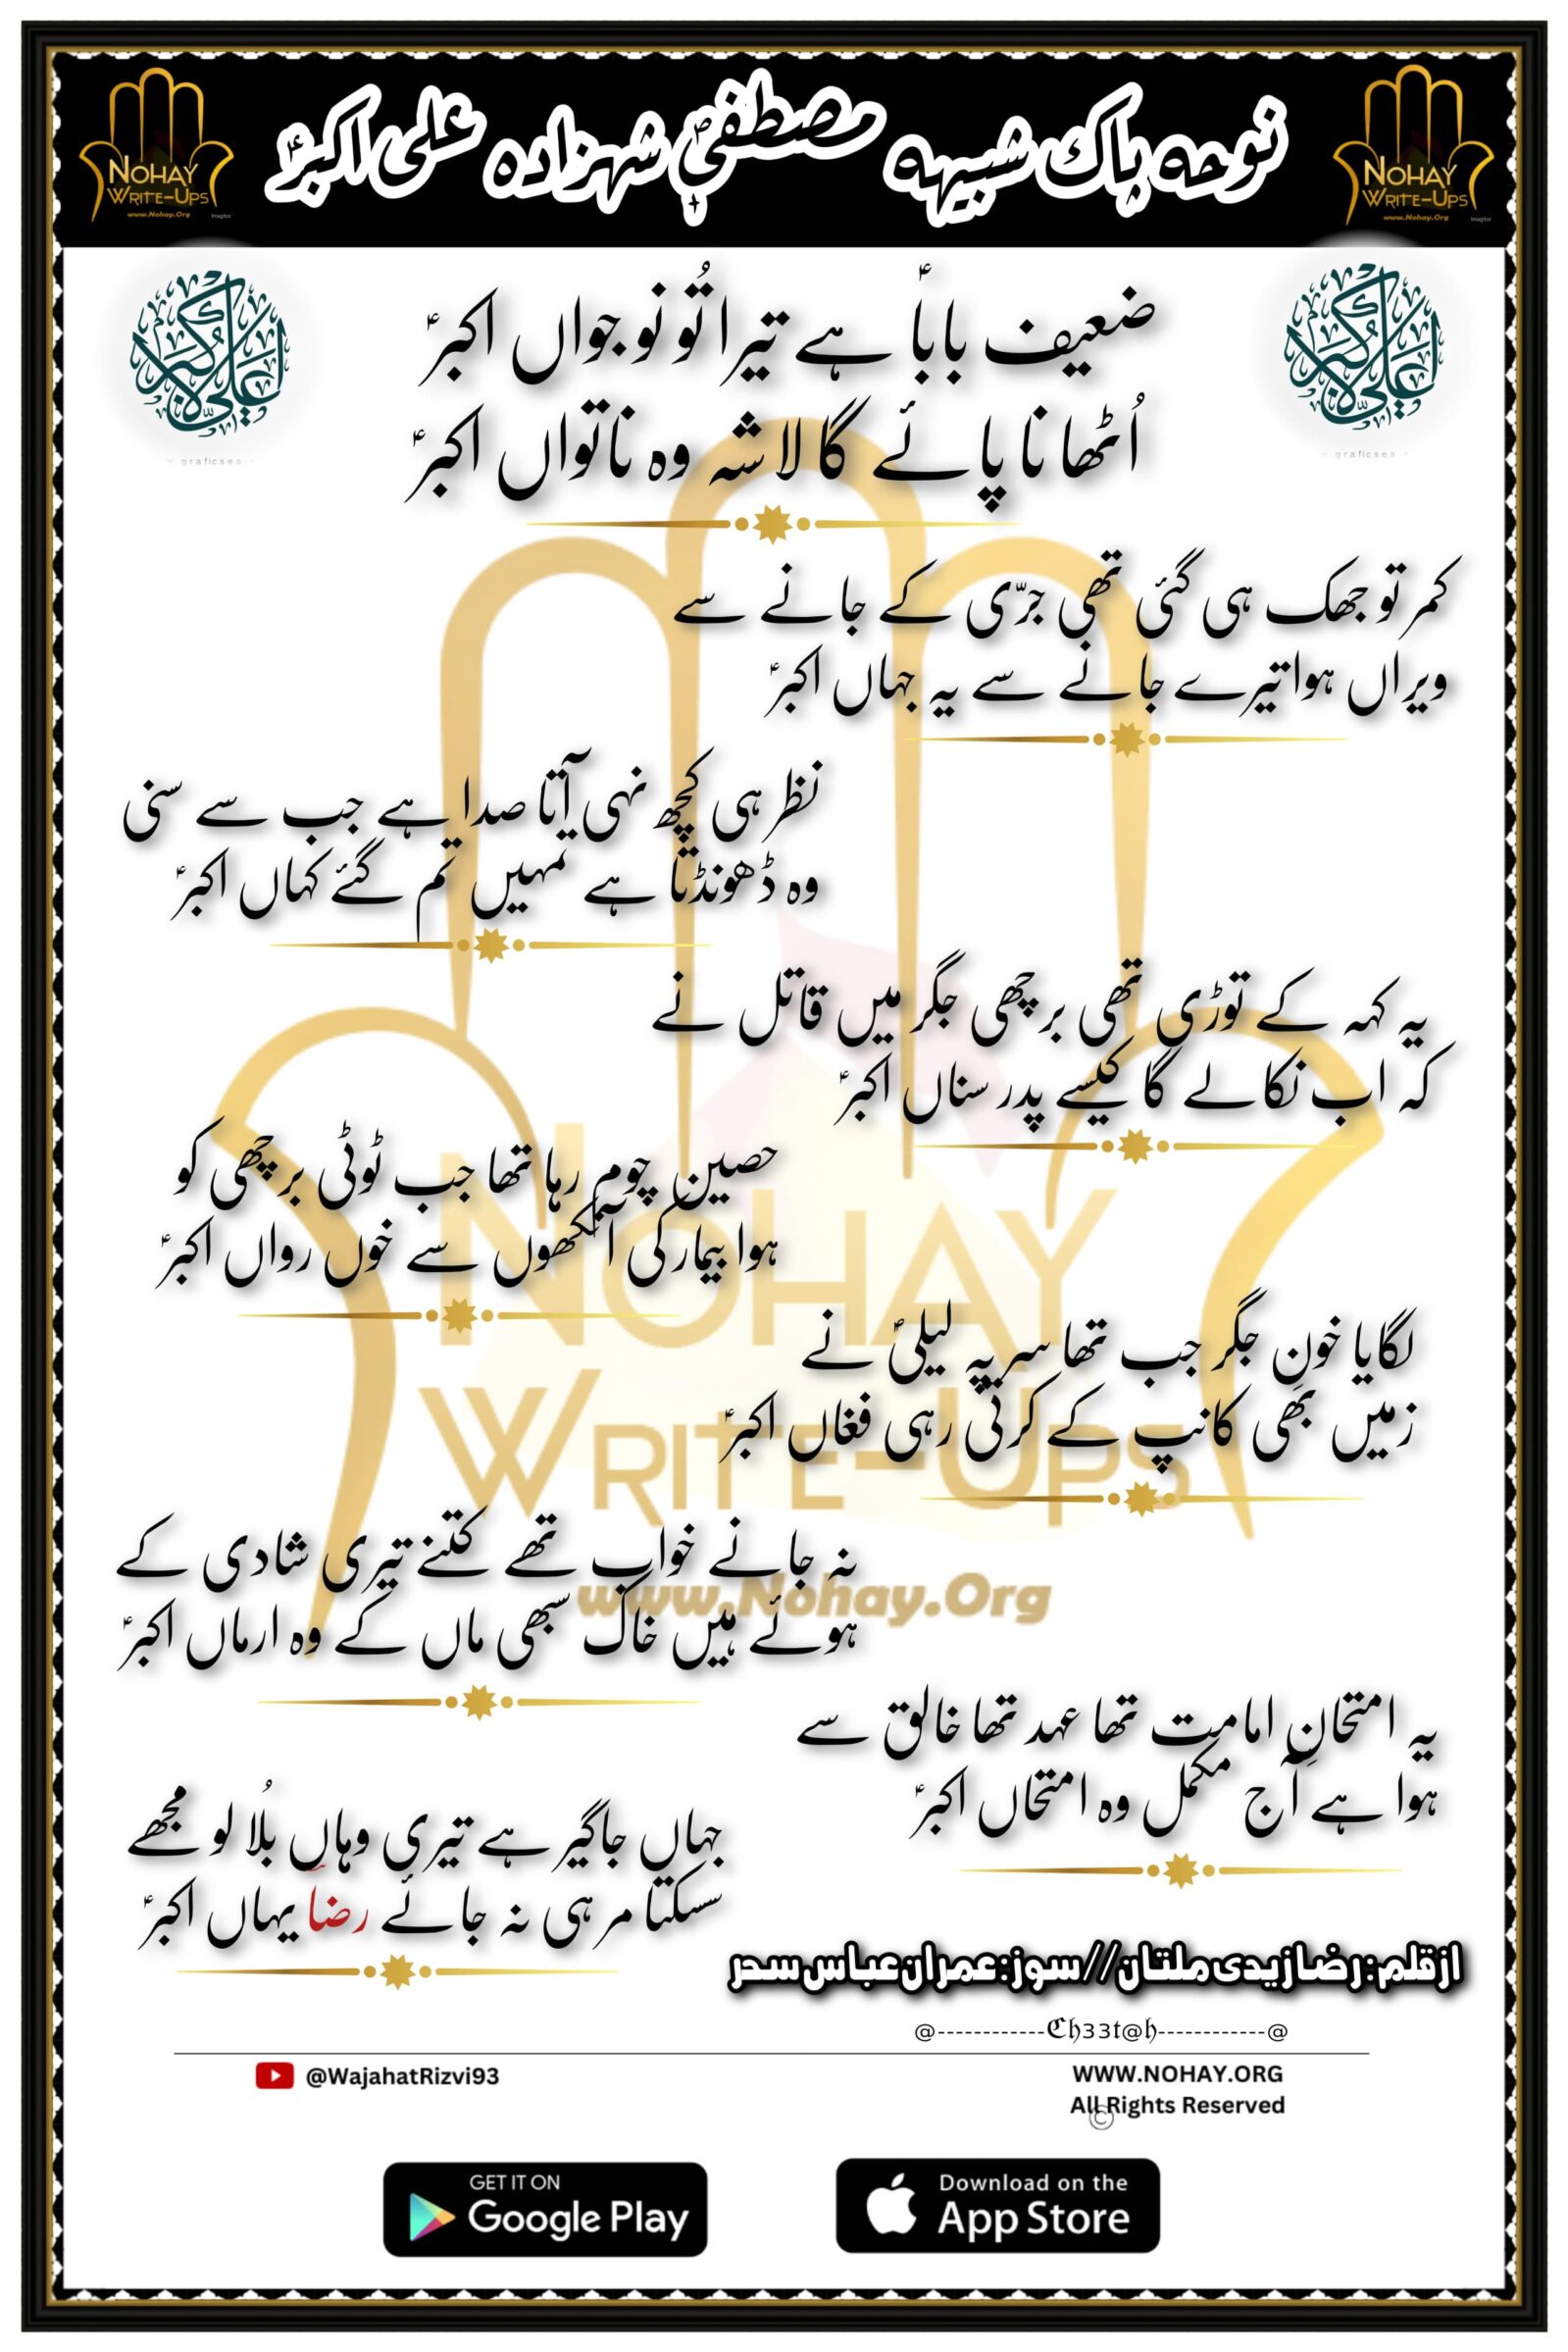 نوحہ پاک شبیہہ مصطفیٰؐ شہزادہ علی اکبرؑ
NOHAY
WRITE-UPS
www.Nohay.Org
NOHAY
WRITE-UPS
www.Nohay.Org
graficsea
graficsea
ضعیف باباؑ ہے تیرا تُو نوجواں اکبرؑ
اُٹھا نا پائے گا لاشہ وہ ناتواں اکبرؑ
کمر تو جھک ہی گئی تھی جرّی کے جانے سے
ویراں ہوا تیرے جانے سے یہ جہاں اکبرؑ
نظر ہی کچھ نہی آتا صدا ہے جب سے سنی
وہ ڈھونڈتا ہے تمہیں تم گئے کہاں اکبرؑ
یہ کہہ کے توڑی تھی برچھی جگر میں قاتل نے
کہ اب نکالے گا کیسے پدر سناں اکبرؑ
حصین چوم رہا تھا جب ٹوٹی برچھی کو
ہوا بیمار کی آنکھوں سے خوں رواں اکبرؑ
لگایا خونِ جگر جب تھا سر پہ لیلیٰؑ نے
زمیں بھی کانپ کے کرتی رہی فغاں اکبرؑ
نہ جانے خواب تھے کتنے تیری شادی کے
ہوئے ہیں خاک سبھی ماں کے وہ ارماں اکبرؑ
یہ امتحانِ امامت تھا عہد تھا خالق سے
ہوا ہے آج مکمل وہ امتحاں اکبرؑ
جہاں جاگیر ہے تیری وہاں بلُا لو مجھے
سسکتا مر ہی نہ جائے رضاؔ یہاں اکبرؑ
NOHAY
WRITE-UPS
www.Nohay.Org
ازقلم:رضا زیدی ملتان//سوز:عمران عباس سحر
@------------ℭ𝔥33𝔱@𝔥------------@
@WajahatRizvi93
WWW.NOHAY.ORG
All Rights Reserved
©
GET IT ON
Google Play
Download on the
App Store